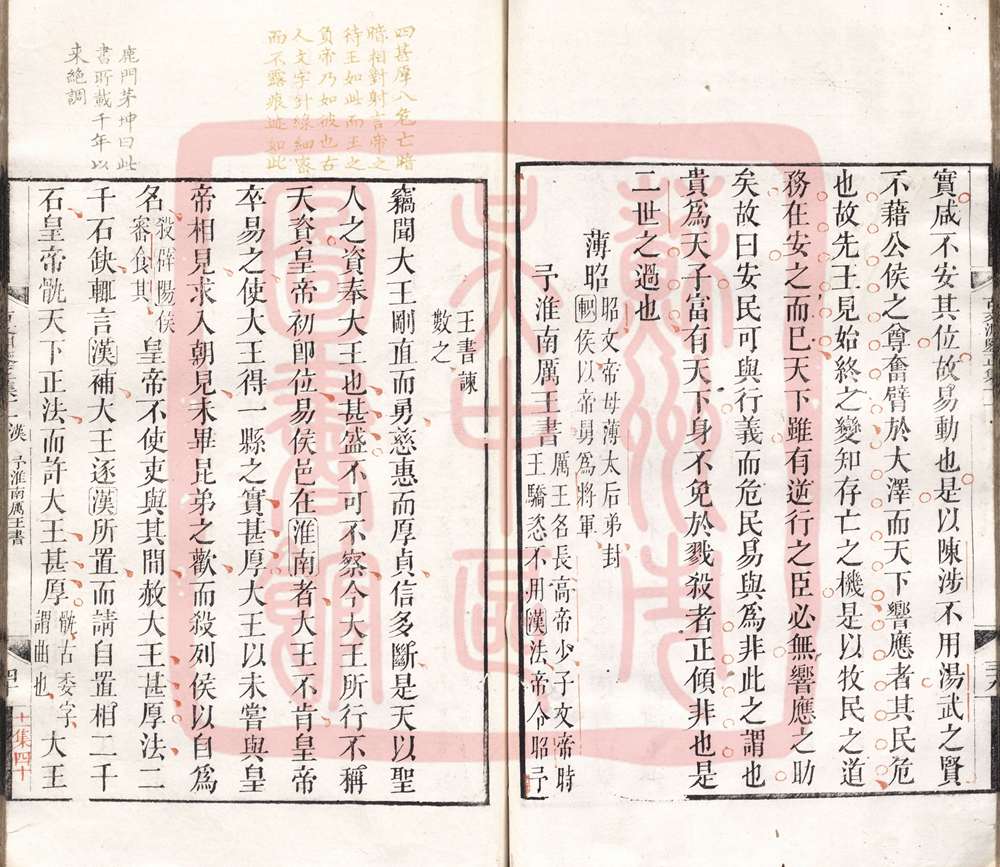 實咸不安其位故易動也是以陳涉不用湯武之賢
不藉公侯之尊奮臂於大澤而天下響應者其民危
也故先王見始終之變知存亡之機是以牧民之道
務在安之而已天下雖有逆行之臣必無響應之助
矣故曰安民可與行義而危民易與爲非此之謂也
貴爲天子富有天下身不免於戮殺者正傾非也是
二世之過也
薄昭
昭文帝母薄太后弟封
軹侯以帝舅爲將軍
予淮南厲王書
厲王名長高帝少子文帝時
王驕恣不用漢法帝令昭予
王書諫
數之
竊聞大王剛直而勇慈惠而厚貞信多斷是天以聖
人之資奉大王也甚盛不可不察今大王所行不稱
天資皇帝初卽位易侯邑在淮南者大王不肯皇帝
卒易之使大王得一縣之實甚厚大王以未嘗與皇
帝相見求入朝見未畢昆弟之歡而殺列侯以自爲
名
殺辟陽侯
審食其
皇帝不使吏與其間赦大王甚厚法二
千石缺輒言漢補大王逐漢所置而請自置相二千
石皇帝骫天下正法而許大王甚厚
骫古委字
謂曲也
大王
四甚厚八危亡暗
暗相對射言帝之
待王如此而王之
負帝乃如彼也古
人文字針線細密
而不露痕迹如此
鹿門茅坤曰此
書所載千年以
來絕調
漢
予淮南厲王書
四十
十集四十
三十九
蘇州市
文中國
圖書館